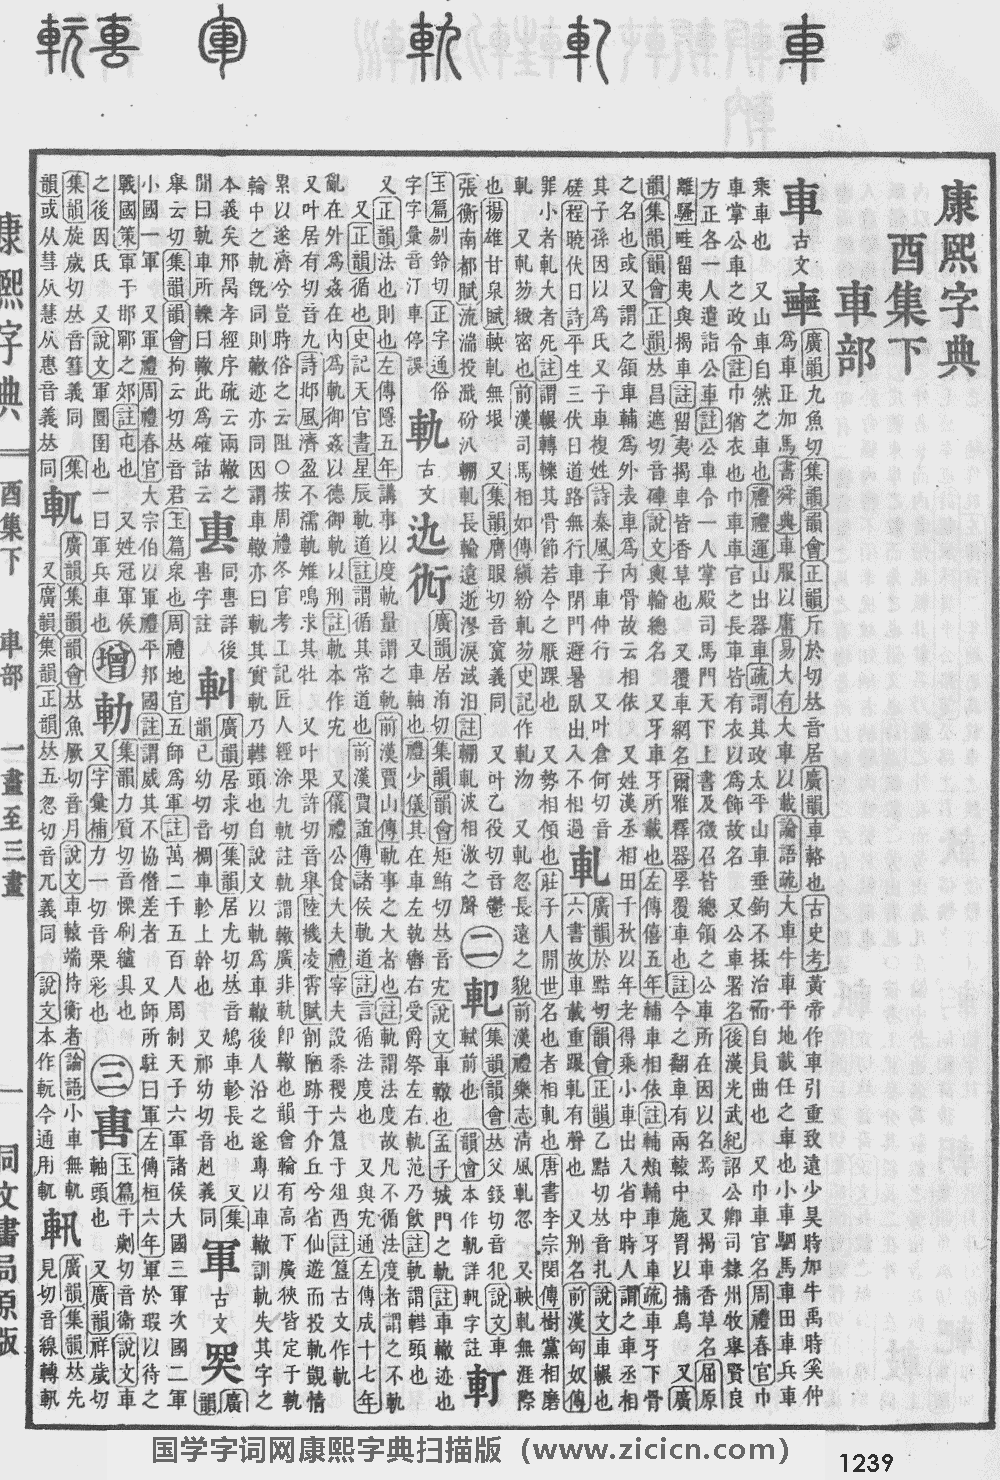 康熙字典
酉集下
車部
車古文
廣韻九魚切集韻韻會正韻斤於切𠀤音居廣韻車輅也古史考黃帝作車引重致遠少昊時加牛禹時奚仲
爲車正加馬書舜典車服以庸易大有大車以載論語疏大車牛車平地載任之車也小車駟馬車田車兵車
乘車也 又山車自然之車也禮禮運山出器車疏謂其政太平山車垂鉤不揉治而自員曲也 又巾車官名周禮春官巾
車掌公車之政令註巾猶衣也巾車車官之長車皆有衣以爲飾故名 又公車署名後漢光武紀詔公卿司隸州牧舉賢良
方正各一人遣詣公車註公車令一人掌殿司馬門天下上書及徵召皆總領之公車所在因以名焉 又揭車香草名屈原
離騷畦留夷與揭車註留夷揭車皆香草也 又覆車網名爾雅釋器罦覆車也註今之翻車有兩轅中施罥以捕鳥 又廣
韻集韻韻會正韻𠀤昌遮切音硨說文輿輪總名 又牙車牙所載也左傳僖五年輔車相依註輔頰輔車牙車疏車牙下骨
之名也或又謂之頷車輔爲外表車爲內骨故云相依 又姓漢丞相田千秋以年老得乘小車出入省中時人謂之車丞相
其子孫因以爲氏又子車複姓詩秦風子車仲行 又叶倉何切音
磋程曉伏日詩平生三伏日道路無行車閉門避暑臥出入不相過
軋
廣韻於黠切韻會正韻乙黠切𠀤音扎說文車輾也
六書故車載重蹍軋有聲也 又刑名前漢匈奴傳
罪小者軋大者死註謂輾轉轢其骨節若今之厭踝也 又勢相傾也莊子人閒世名也者相軋也唐書李宗閔傳樹黨相磨
軋 又軋芴緻密也前漢司馬相如傳縝紛軋芴史記作軋沕 又軋忽長遠之貌前漢禮樂志清風軋忽 又軮軋無涯際
也揚雄甘泉賦軮軋無垠 又集韻膺眼切音 義同 又叶乙役切音鬱
張衡南都賦流湍投濈砏汃輣軋長輸遠逝漻淚淢汩註輣軋波相激之聲
二
軓
集韻韻會𠀤父鋄切音犯說文車
軾前也
玉篇剔鈴切正字通俗
字字彙音汀車停誤
軌古文
廣韻居洧切集韻韻會矩鮪切𠀤音宄說文車轍也孟子城門之軌註車轍迹也
又車軸也禮少儀其在車左執轡右受爵祭左右軌范乃飲註軌謂轊頭也
又正韻法也則也左傳隱五年講事以度軌量謂之軌前漢賈山傳軌事之大者也註軌謂法度也 又凡不循法度者謂之不軌
又正韻循也史記天官書星辰軌道註謂循其常道也前漢賈誼傳諸侯軌道註言循法度也 又與宄通左傳成十七年
亂在外爲姦在內爲軌御姦以德御軌以刑註軌本作宄 又儀禮公食大夫禮宰夫設黍稷六簋于俎西註簋古文作軌
又叶居有切音九詩邶風濟盈不濡軌雉鳴求其牡 又叶果許切音舉陸機凌霄賦削陋跡于介丘兮省仙遊而投軌觀情
累以遂濟兮豈時俗之云阻○按周禮冬官考工記匠人經涂九軌註軌謂轍廣非軌卽轍也韻會輪有高下廣狹皆定于軌
輪中之軌旣同則轍迹亦同因謂車轍亦曰軌其實軌乃轊頭也自說文以軌爲車轍後人沿之遂專以車轍訓軌失其字之
本義矣邢昺孝經序疏云兩轍之
閒曰軌車所轢曰轍此爲確詁云
軎
同軎詳後
軎字註
廣韻居求切集韻居尤切𠀤音鳩車軫長也 又集
韻已幼切音 車軫上幹也 又祁幼切音赳義同
軍古文
廣韻
舉云切集韻韻會拘云切𠀤音君玉篇衆也周禮地官五師爲軍註萬二千五百人周制天子六軍諸侯大國三軍次國二軍
小國一軍 又軍禮周禮春官大宗伯以軍禮平邦國註謂威其不協僭差者 又師所駐曰軍左傳桓六年軍於瑕以待之
戰國策軍于邯鄲之郊註屯也 又姓冠軍侯
之後因氏 又說文軍圜圍也一曰軍兵車也
增
集韻力質切音慄刷纑具也
又字彙補力一切音栗彩也
三
軎
玉篇于劌切音衞說文車
軸頭也 又廣韻祥歲切
集韻旋歲切𠀤音篲義同 集
韻或从彗从慧从惠音義𠀤同
軏
廣韻集韻韻會𠀤魚厥切音月說文車轅端持衡者論語小車無軏
又廣韻集韻正韻𠀤五忽切音兀義同 說文本作 今通用軏
軐
廣韻集韻𠀤先
見切音線轉軐
康熙字典
酉集下
車部
一畫至三畫
一
同文書局原版
国学字词网康熙字典扫描版(www.zicicn.com)
1239